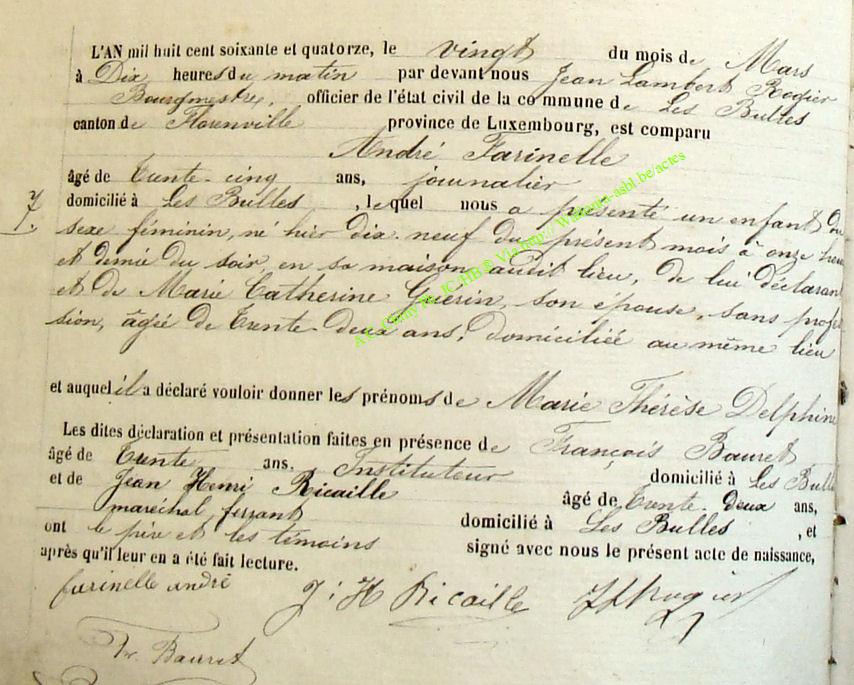 L'AN mil huit cent soixante et quatorze, le vingt du mois de Mars
à Dix heures du matin par devant nous Jean Lambert Rogier
Bourgmestre, officier de l'état civil de la commune de Les Bulles
canton de Florenville province de Luxembourg, est comparu
André Farinelle
âgé de Trente-cinq ans, journalier
domicilié à Les Bulles, lequel nous a présenté un enfant du
7.
sexe féminin, né hier dix-neuf du présent mois à onze heures
et demie du soir, en sa maison audit lieu, de lui déclarant
et de Marie Catherine Guerin, son épouse, sans profes
sion, âgée de trente-deux ans, domiciliée au même lieu
et auquel il a déclaré vouloir donner les prénoms de Marie Thérèse Delphine
Les dites déclaration et présentation faites en présence de François Bauret
âgé de Trente ans, Instituteur domicilié à Les Bulles
et de Jean Henri Ricaille âgé de trente-deux ans,
maréchal ferrant domicilié à Les Bulles, et
ont le père et les témoins signé avec nous le présent acte de naissance,
après qu'il leur en a été fait lecture.
farinelle andré J: H Ricaille JLRogier
Fr. Bauret